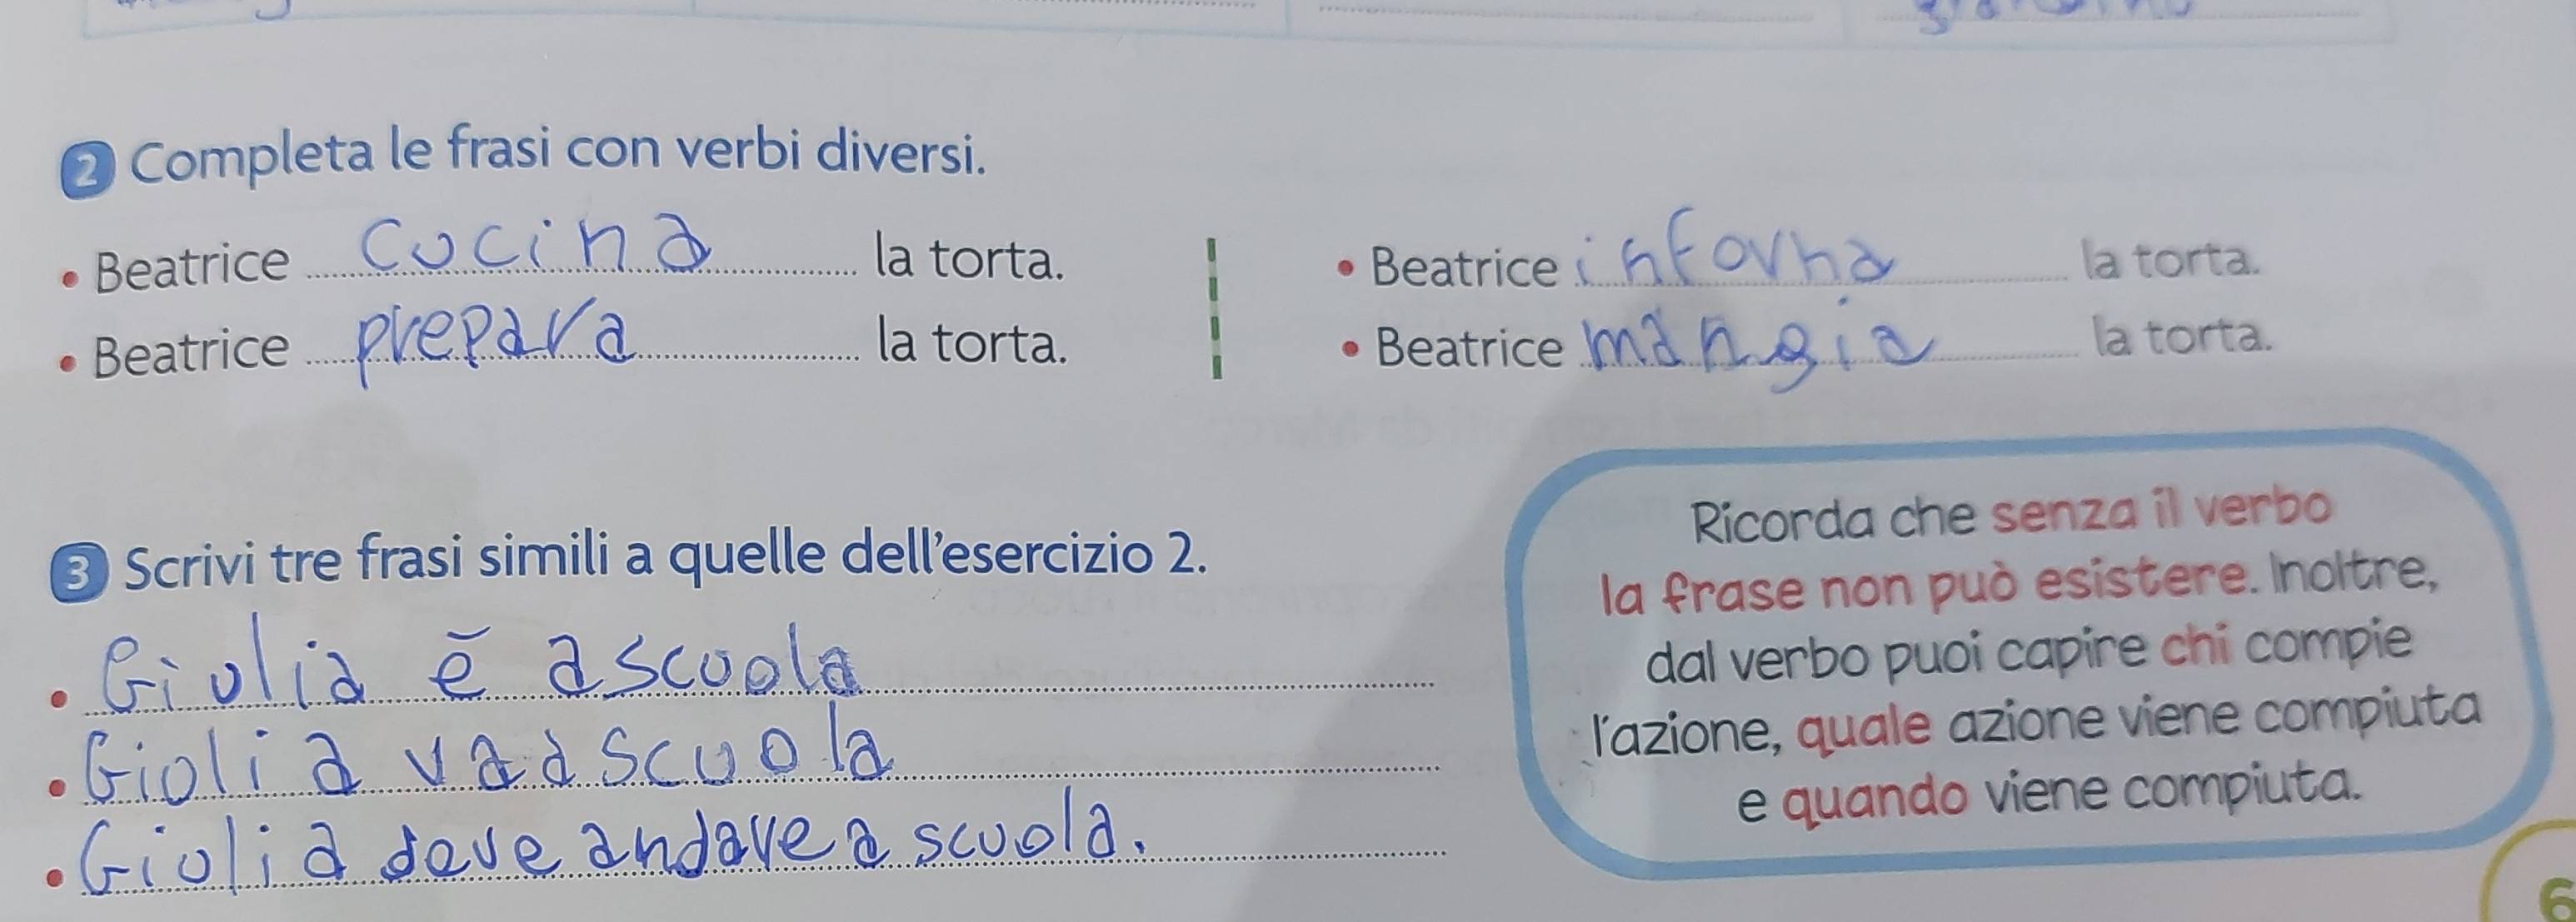 2 Completa le frasi con verbi diversi.
• Beatrice cucina la torta.
• Beatrice inforna la torta.
• Beatrice prepara la torta.
• Beatrice mangia la torta.
3 Scrivi tre frasi simili a quelle dell'esercizio 2.
• Giulia è a scuola
• Giolia va a scuola
• Giulia deve andare a scuola.
Ricorda che senza il verbo
la frase non può esistere. Inoltre,
dal verbo puoi capire chi compie
l'azione, quale azione viene compiuta
e quando viene compiuta.
6